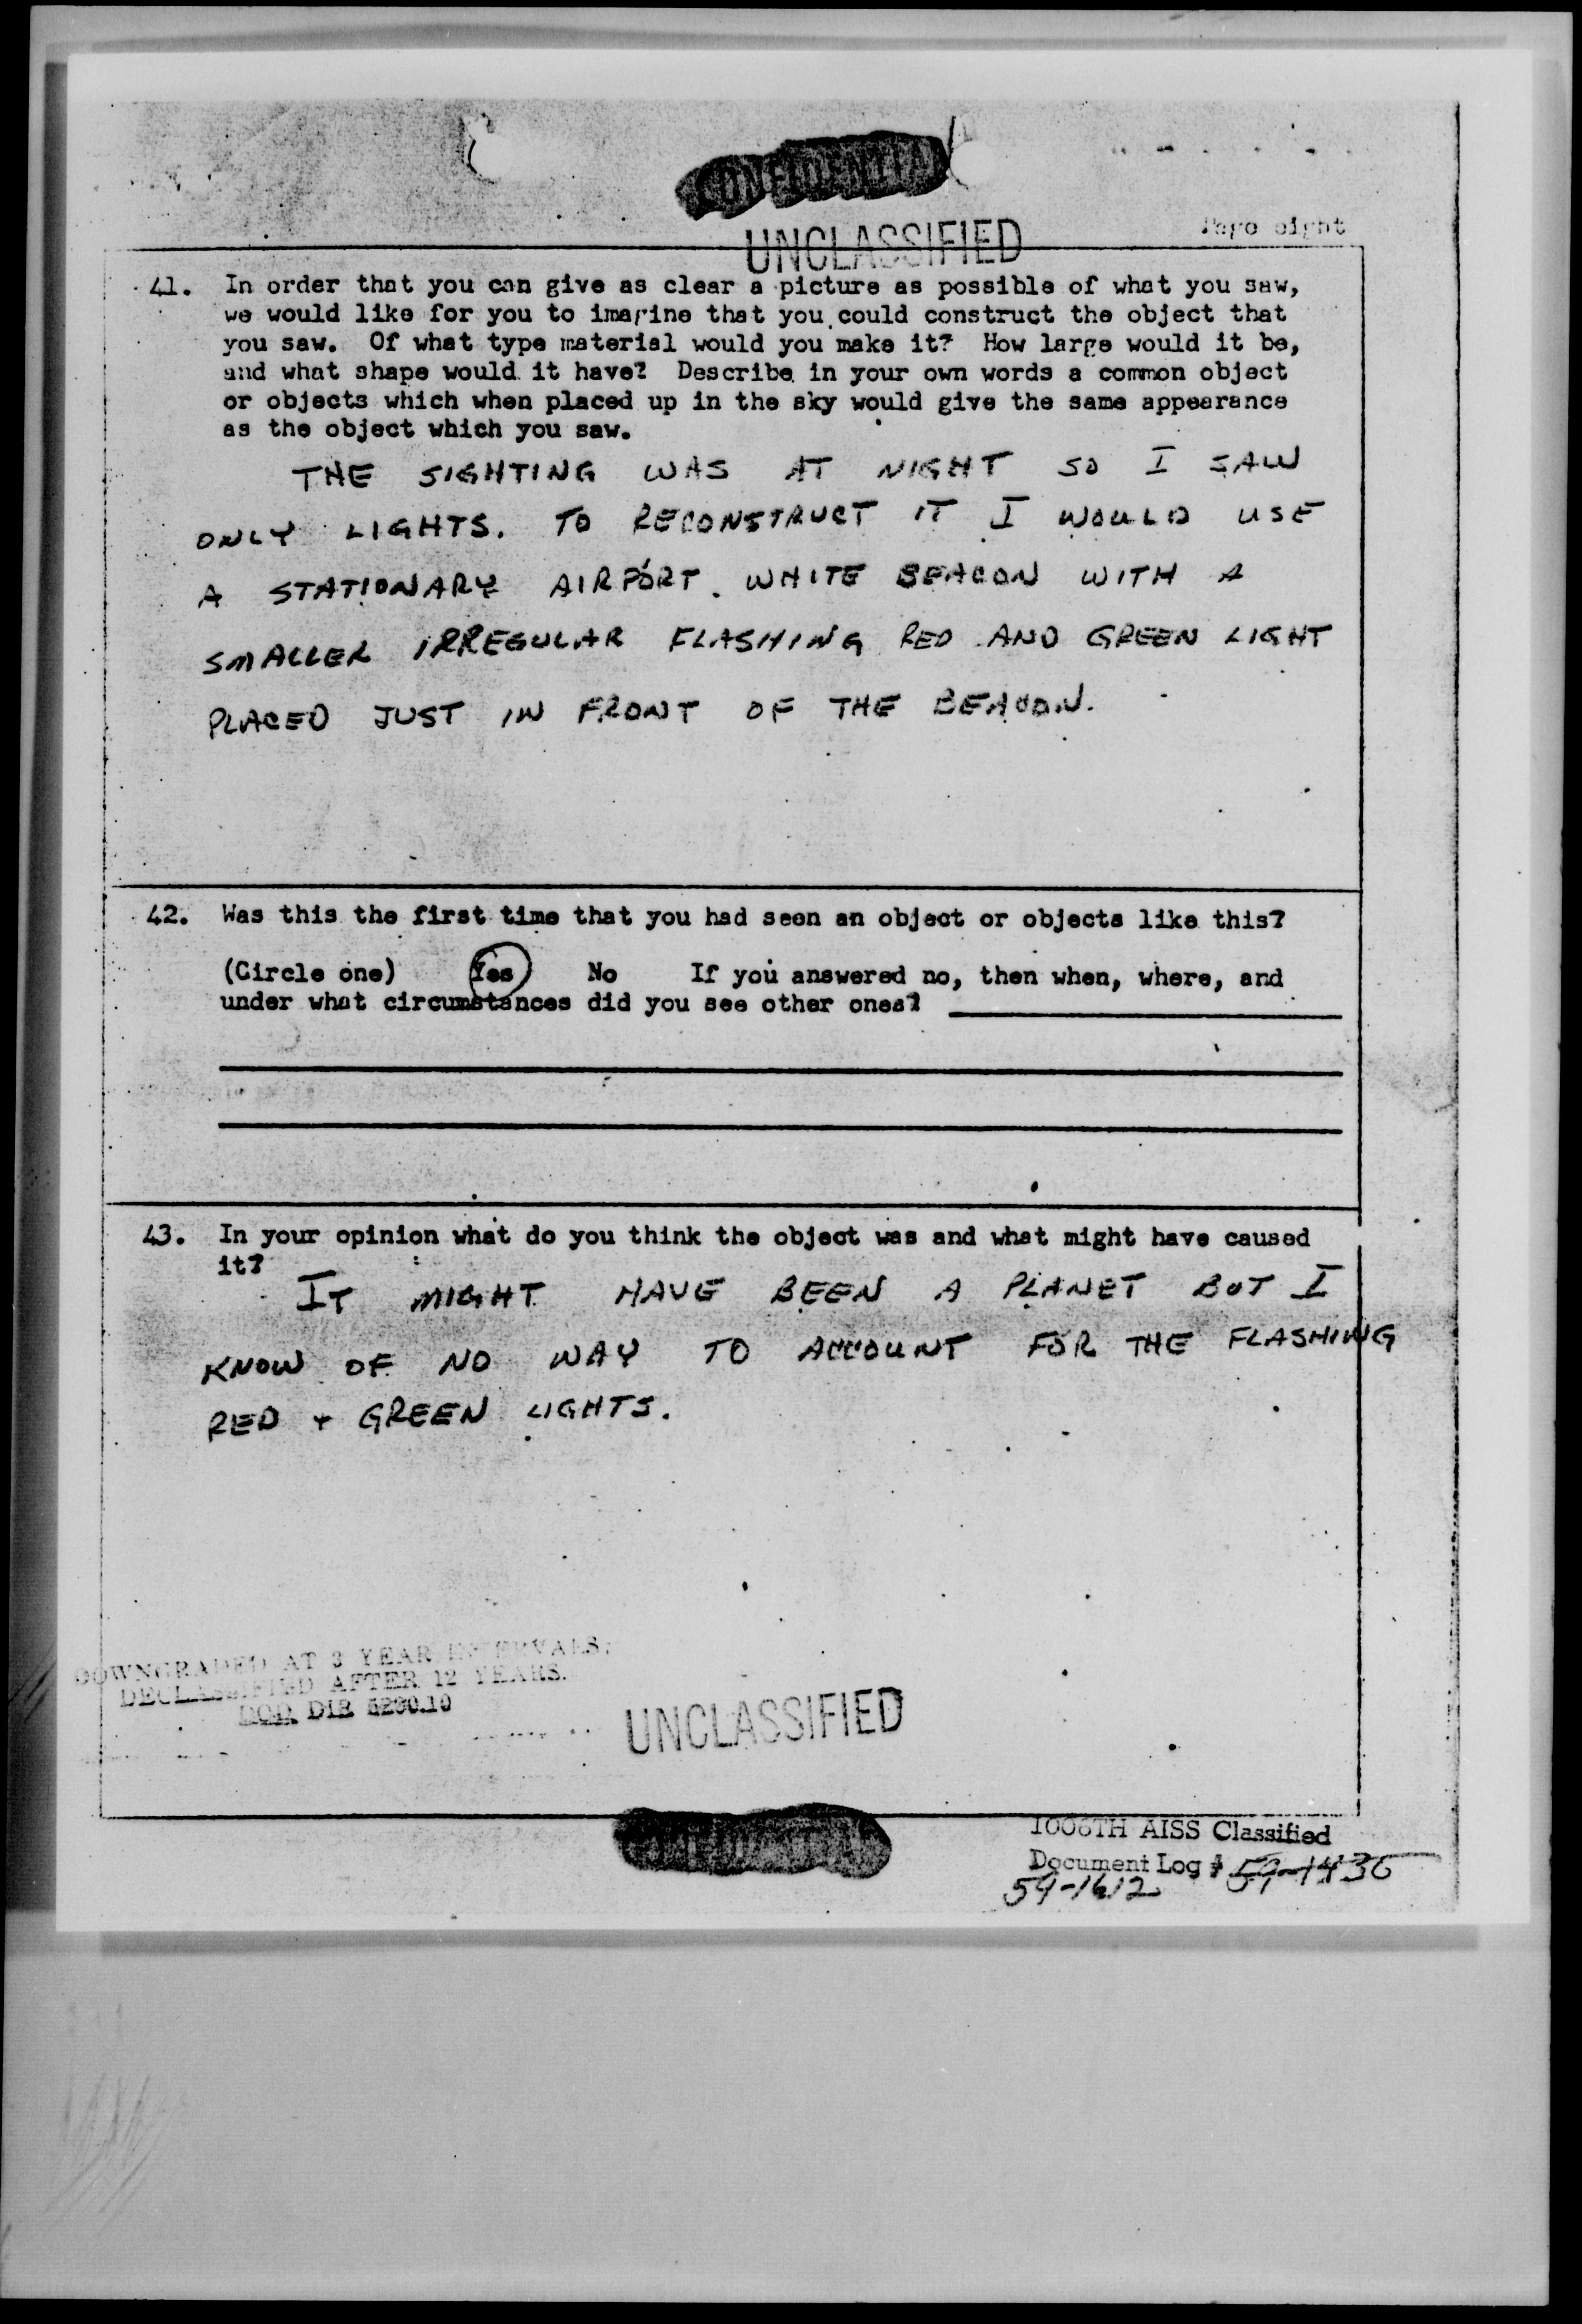 CONFIDENTIAL
UNCLASSIFIED
Page eight
41. In order that you can give as clear a picture as possible of what you saw,
we would like for you to imagine that you could construct the object that
you saw. Of what type material would you make it? How large would it be,
and what shape would it have? Describe in your own words a common object
or objects which when placed up in the sky would give the same appearance
as the object which you saw.
THE SIGHTING WAS AT NIGHT SO I SAW
ONLY LIGHTS. TO RECONSTRUCT IT I WOULD USE
A STATIONARY AIRPORT WHITE BEACON WITH A
SMALLER IRREGULAR FLASHING RED AND GREEN LIGHT
PLACED JUST IN FRONT OF THE BEACON.
42. Was this the first time that you had seen an object or objects like this?
(Circle one) Yes No If you answered no, then when, where, and
under what circumstances did you see other ones?
43. In your opinion what do you think the object was and what might have caused
it?
IT MIGHT HAVE BEEN A PLANET BUT I
KNOW OF NO WAY TO ACCOUNT FOR THE FLASHING
RED + GREEN LIGHTS.
DOWNGRADED AT 3 YEAR INTERVALS;
DECLASSIFIED AFTER 12 YEARS.
DOD DIR 5200.10
UNCLASSIFIED
CONFIDENTIAL
1006TH AISS Classified
Document Log # 59-1436
59-1612